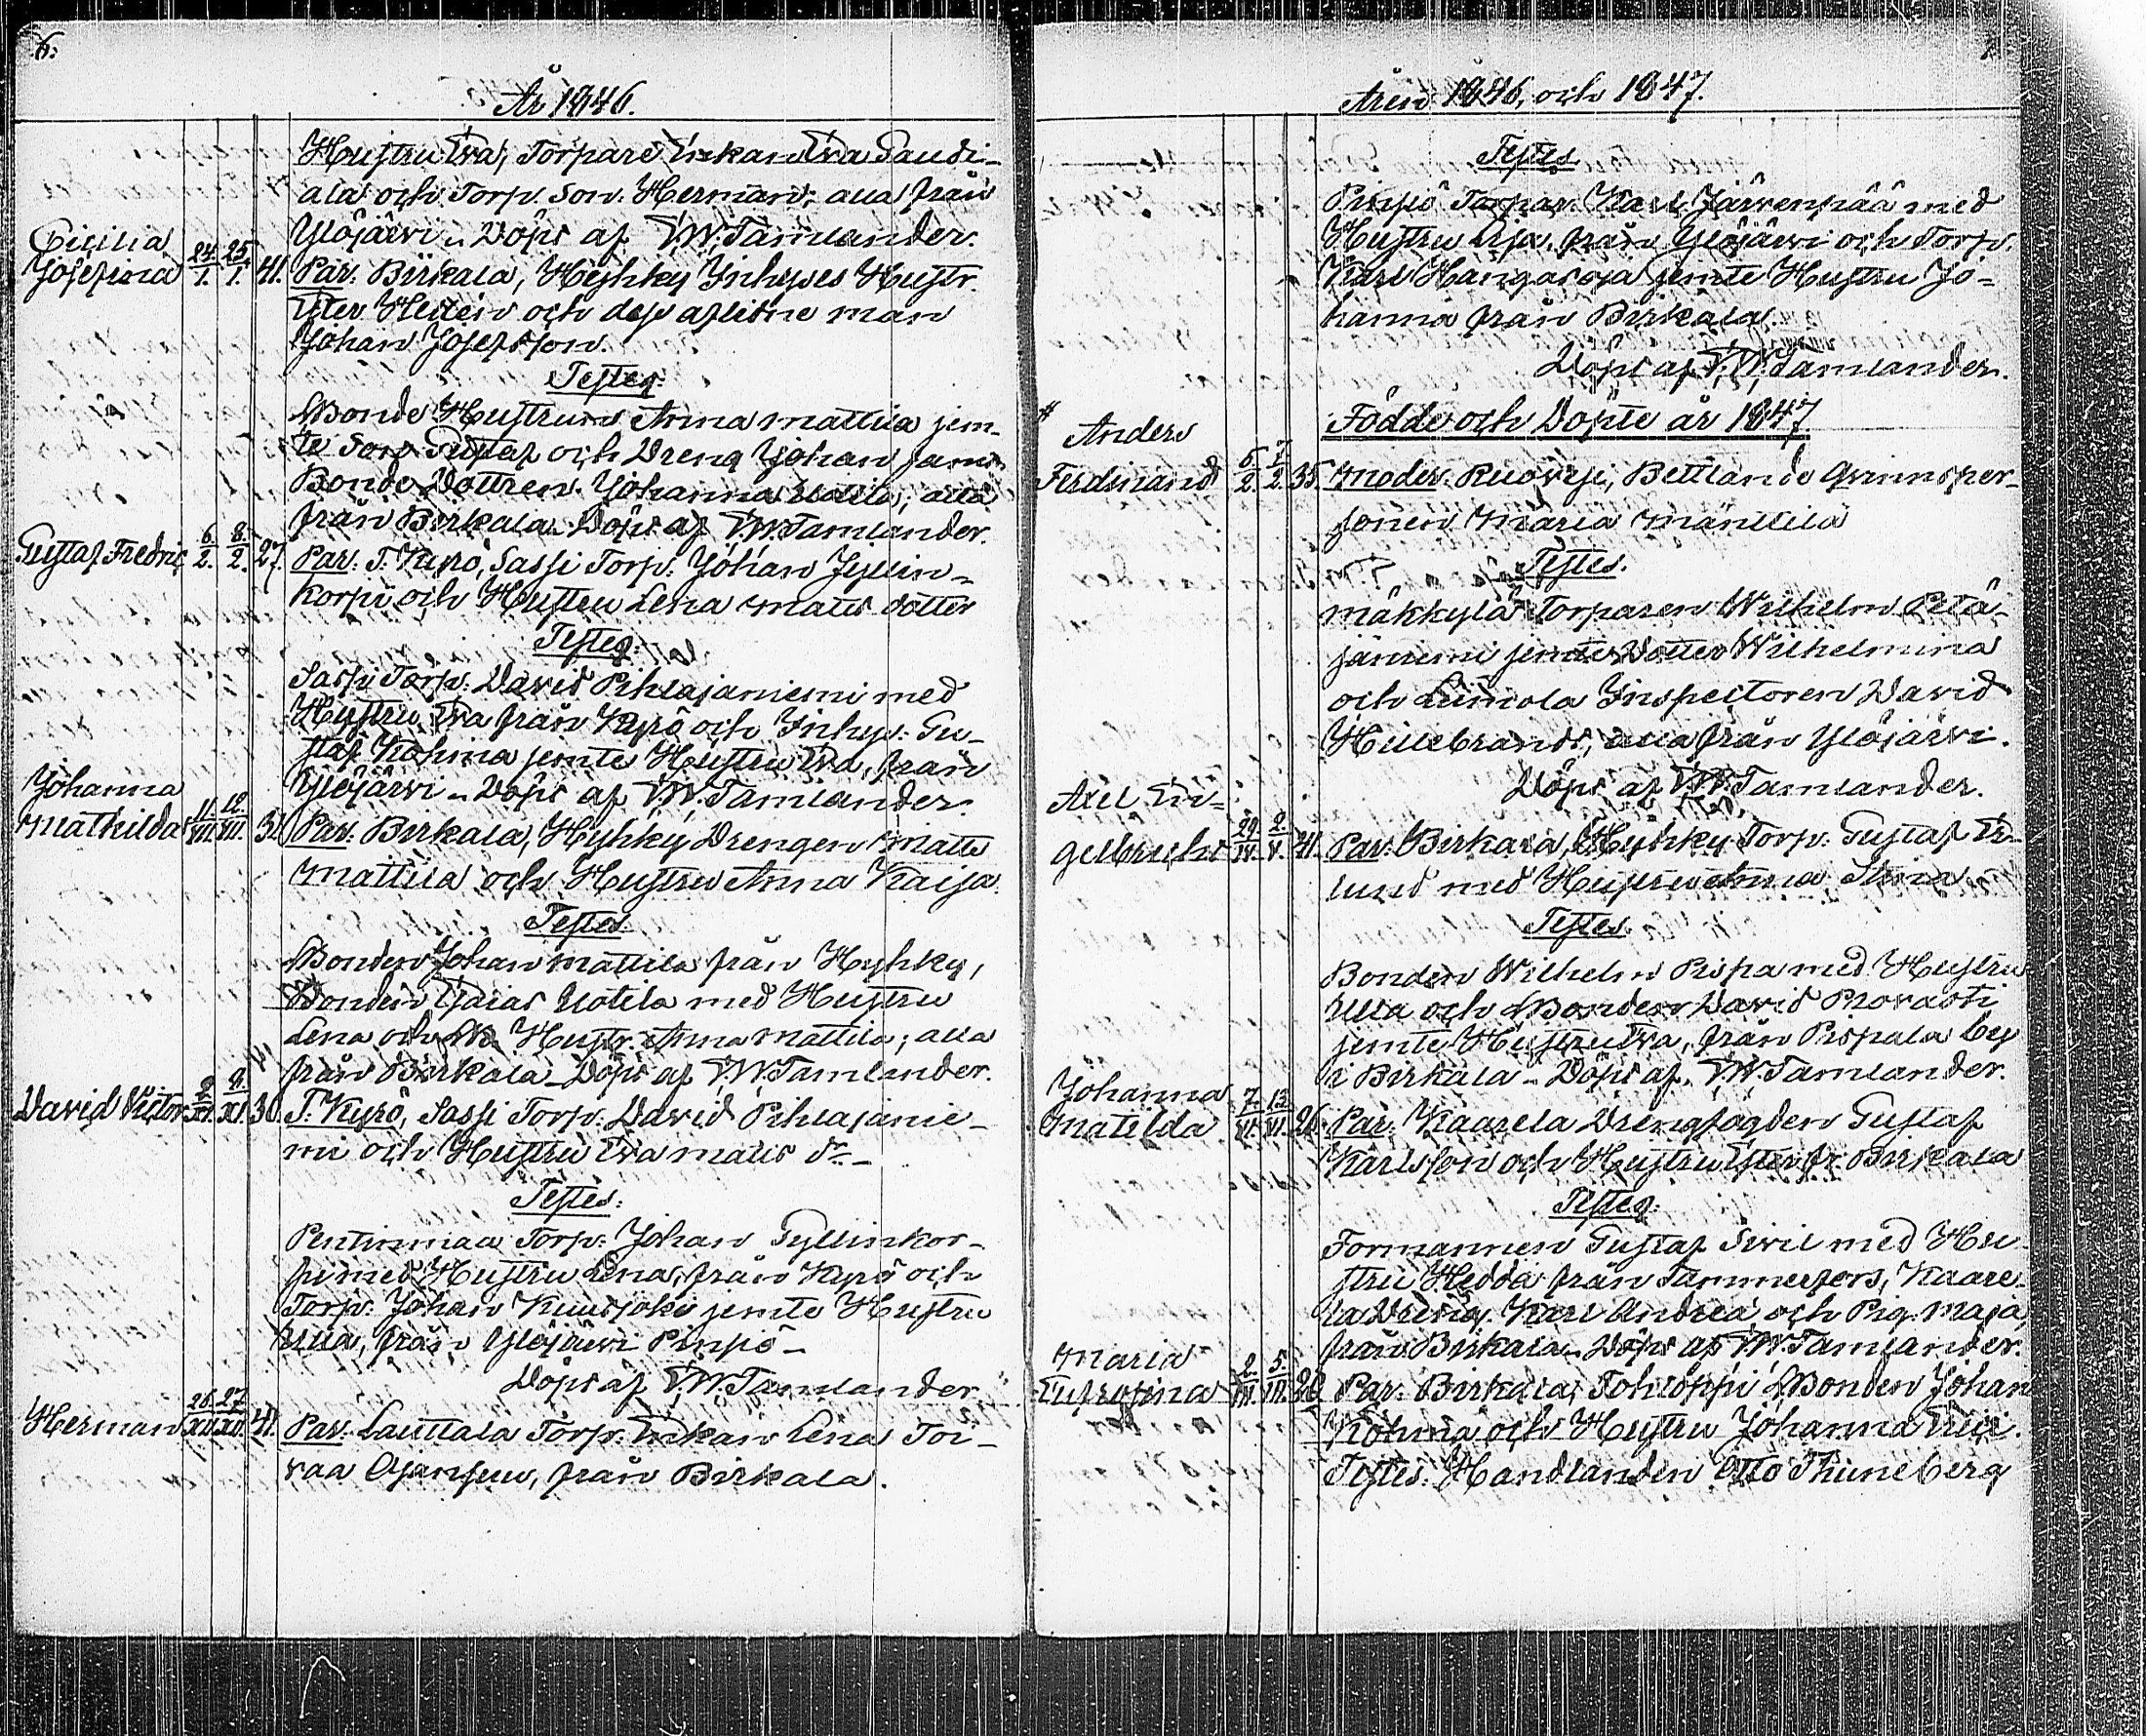 6.
År 1846.
Hustru Eva, Torpare Enkan Eva Paudi-
ala och Torp. Son. Herman; alla från
Ylöjärvi. Döpt af V.W. Tamlander.
Cicilia
Josefina 24/1. 25/1. 41. Par: Birkala, Hyhky Inhyses Hustr.
Ester Helen och dess aflidne man
Johan Josefsson.
Testes:
Bonde Hustrun Anna Mattila jem-
te Son Gustaf och Dreng Johan samt
Bonde Dottren Johanna Uotila; alla
från Birkala. Döpt af V.W. Tamlander.
Gustaf Fredric 6/2. 8/2. 27. Par: T. Kyrö, Sassi Torp. Johan Gyllin-
korpi och Hustru Lena Matts dotter
Testes:
Sassi Torp: David Pihlajaniemi med
Hustru Eva från Kyrö och Inhys: Gu-
staf Kohina jemte Hustru Eva, från
Ylöjärvi. Döpt af V.W. Tamlander.
Johanna
Mathilda 11/VII. 12/VII. 32. Par: Birkala, Hyhky Drengen Matts
Mattila och Hustru Anna Kaisa.
Testes.
Bonden Johan Mattila från Hyhky,
Bonden Esaias Uotila med Hustru
Lena och Hustr. Anna Mattila; alla
från Birkala. Döpt af V.W. Tamlander.
David Victor 2/XI. 8/XI. 30. T. Kyrö, Sassi Torp. David Pihlajanie-
mi och Hustru Eva Matts dr.
Testes:
Pentinmaa Torp: Johan Gyllinkor-
pi med Hustru Lena, från Kyrö och
Torp: Johan Kuusjoki jemte Hustru
Ulla, från Ylöjärvi Pinsiö
Döpt af V.W. Tamlander
Herman 26/XII. 27/XII. 41. Par: Lauttala Torp. Enkan Lena Toi-
vaa Ojansuu, från Birkala.
7.
Åren 1846, och 1847.
Testes
Pinsiö Torpar. Karl Järvenpää med
Hustru Lisa, från Ylöjärvi och Torp.
Karl Hangasoja jemte Hustru Jo-
hanna från Birkala.
Döpt af V.W. Tamlander.
Födde och Döpte år 1847.
Anders
Ferdinand 6/2. 7/2. 35. Moder: Ruovesi, Bettlande Qvinnsper-
sonen Maria Mänttilä
Testes.
Mäkkylä Torparen Wilhelm Petä-
jäniemi jemte Dotter Wilhelmina
och Inspectoren David
Hillebrandt, alla från Ylöjärvi.
Döpt af V.W. Tamlander.
Axel En-
gelbrecht 29/IV. 2/V. 41. Par: Birkala, Hyhky Torp: Gustaf Er-
lund med Hustru Anna Stina
Testes.
Bonden Wilhelm Pispa med Hustru
Ulla och Bonden David Provasti
jemte Hustru Eva, från Pispala by
i Birkala. Döpt af V.W. Tamlander.
Johanna
Matilda 7/VI. 13/VI. 26. Par: Kaarela Drengfogden Gustaf
Karlsson och Hustru Ester fr. Birkala
Testes:
Formannen Gustaf Sevil med Hu-
stru Hedda från Tammerfors, Kaare-
la Dreng. Karl Andrea och Pig. Maja,
från Birkala. Döpt af V.W. Tamlander.
Maria
Eufrosina 2/VII. 5/VII. 28. Par: Birkala, Tohloppi Bonden Johan
Kohina och Hustru Johanna Eric.
Testes: Handlanden Otto Thuneberg